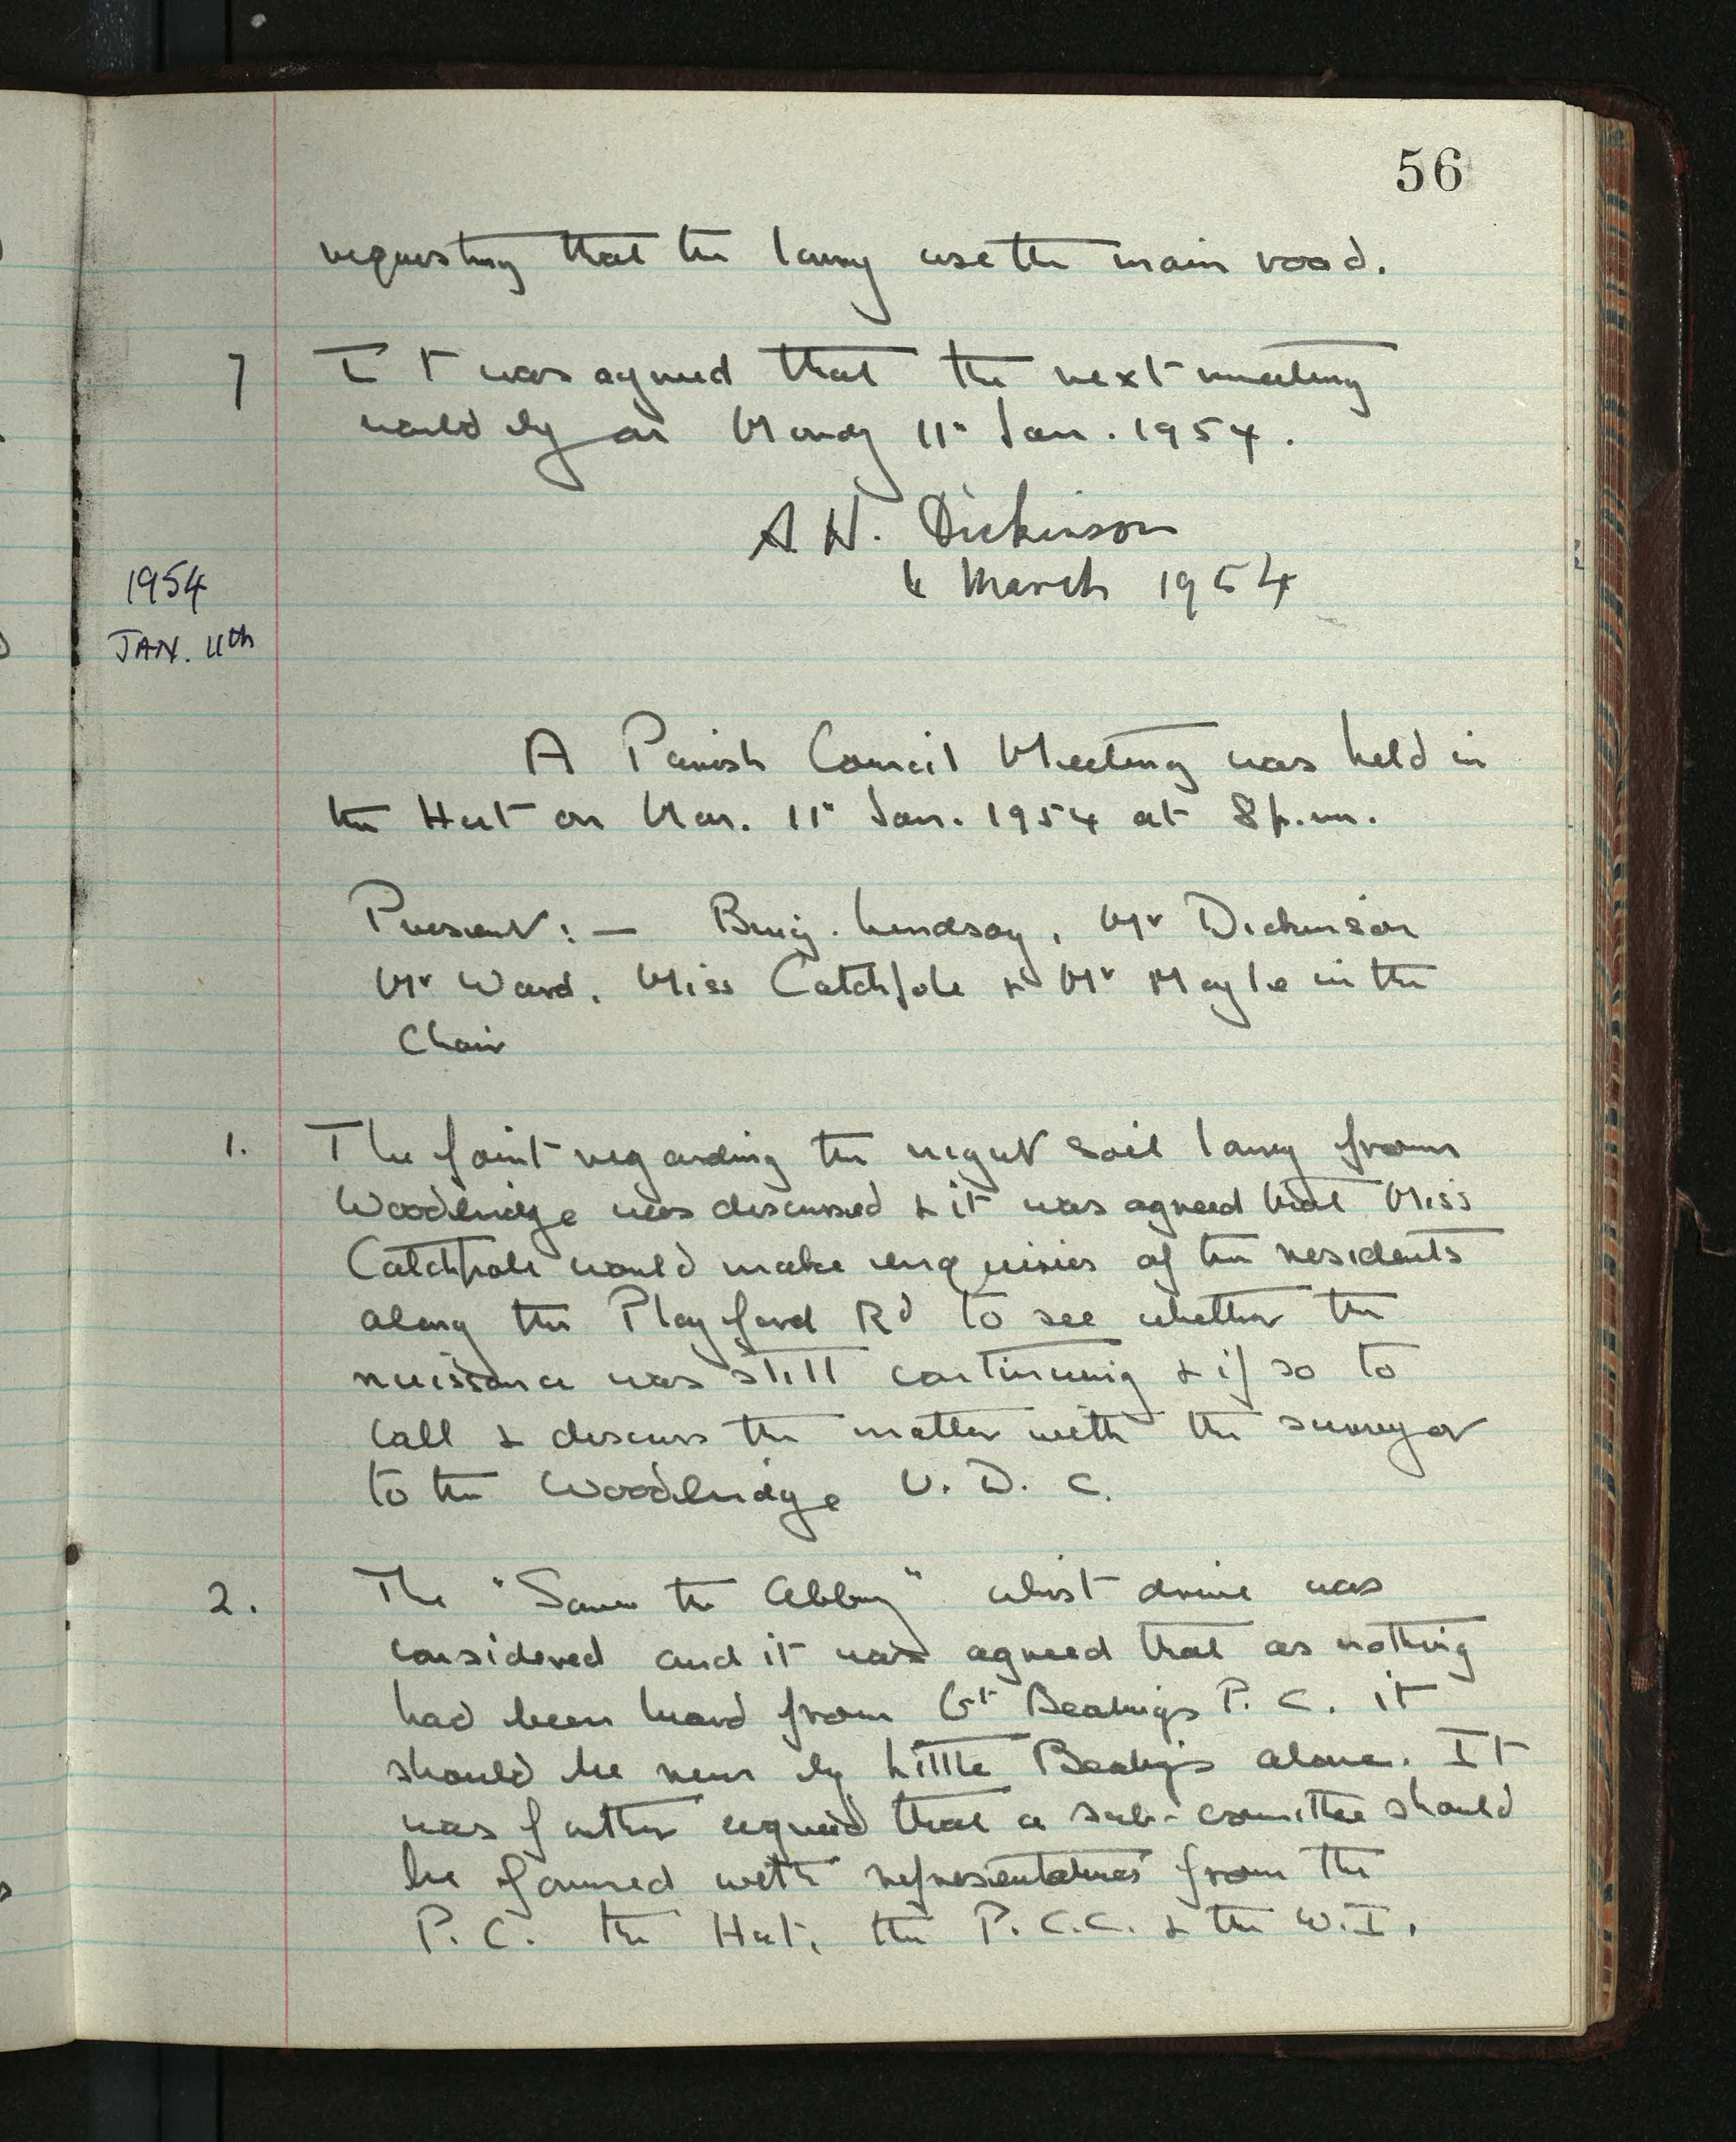 56
requesting that the lorry use the main road.
7 It was agreed that the next meeting
would be on Monday 11th Jan. 1954.
A N. Dickinson
March 1954
1954
JAN. 11th
A Parish Council Meeting was held in
the Hut on Mon. 11th Jan. 1954 at 8 p.m.
Present :- Brig. Lindsay, Mr Dickinson
Mr Ward, Miss Catchpole & Mr Mayle in the
Chair
1. The point regarding the night soil lorry from
Woodbridge was discussed & it was agreed that Miss
Catchpole would make enquiries of the residents
along the Playford Rd to see whether the
nuissance was still continuing & if so to
call & discuss the matter with the surveyor
to the Woodbridge U. D. C.
2. The "Save the Abbey" whist drive was
considered and it was agreed that as nothing
had been heard from Gt Bealings P. C. it
should be run by Little Bealings alone. It
was further agreed that a sub-committee should
be formed with representatives from the
P. C. the Hut, the P. C. C. & the W. I.